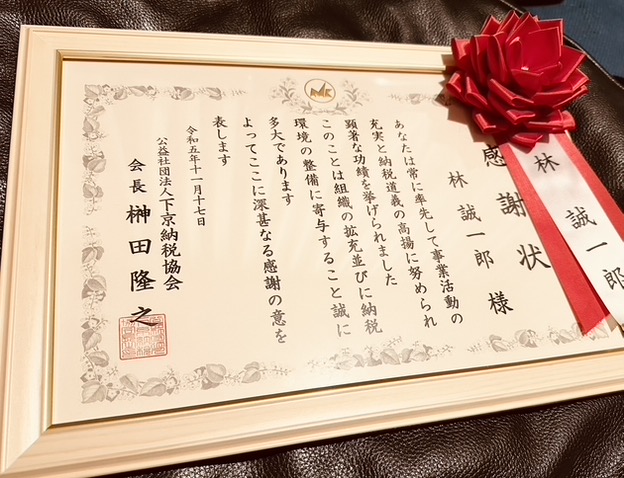 感謝状
林誠一郎様
あなたは常に率先して事業活動の
充実と納税道義の高揚に努められ
顕著な功績を挙げられました
このことは組織の拡充並びに納税
環境の整備に寄与すること誠に
多大であります
よってここに深甚なる感謝の意を
表します
令和五年十一月十七日
公益社団法人下京納税協会
会長 榊田隆之
林誠一郎